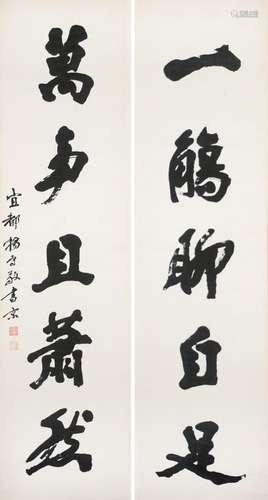 一觴聊自足
萬事且蕭然
宜都楊守敬書